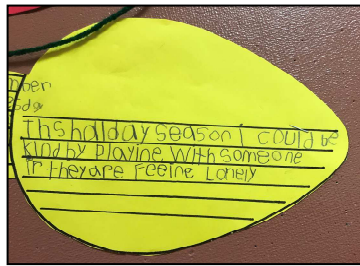 mber
esda
Ths hallday season i could be
kind by playine with someone
if they are Feeine Lonely